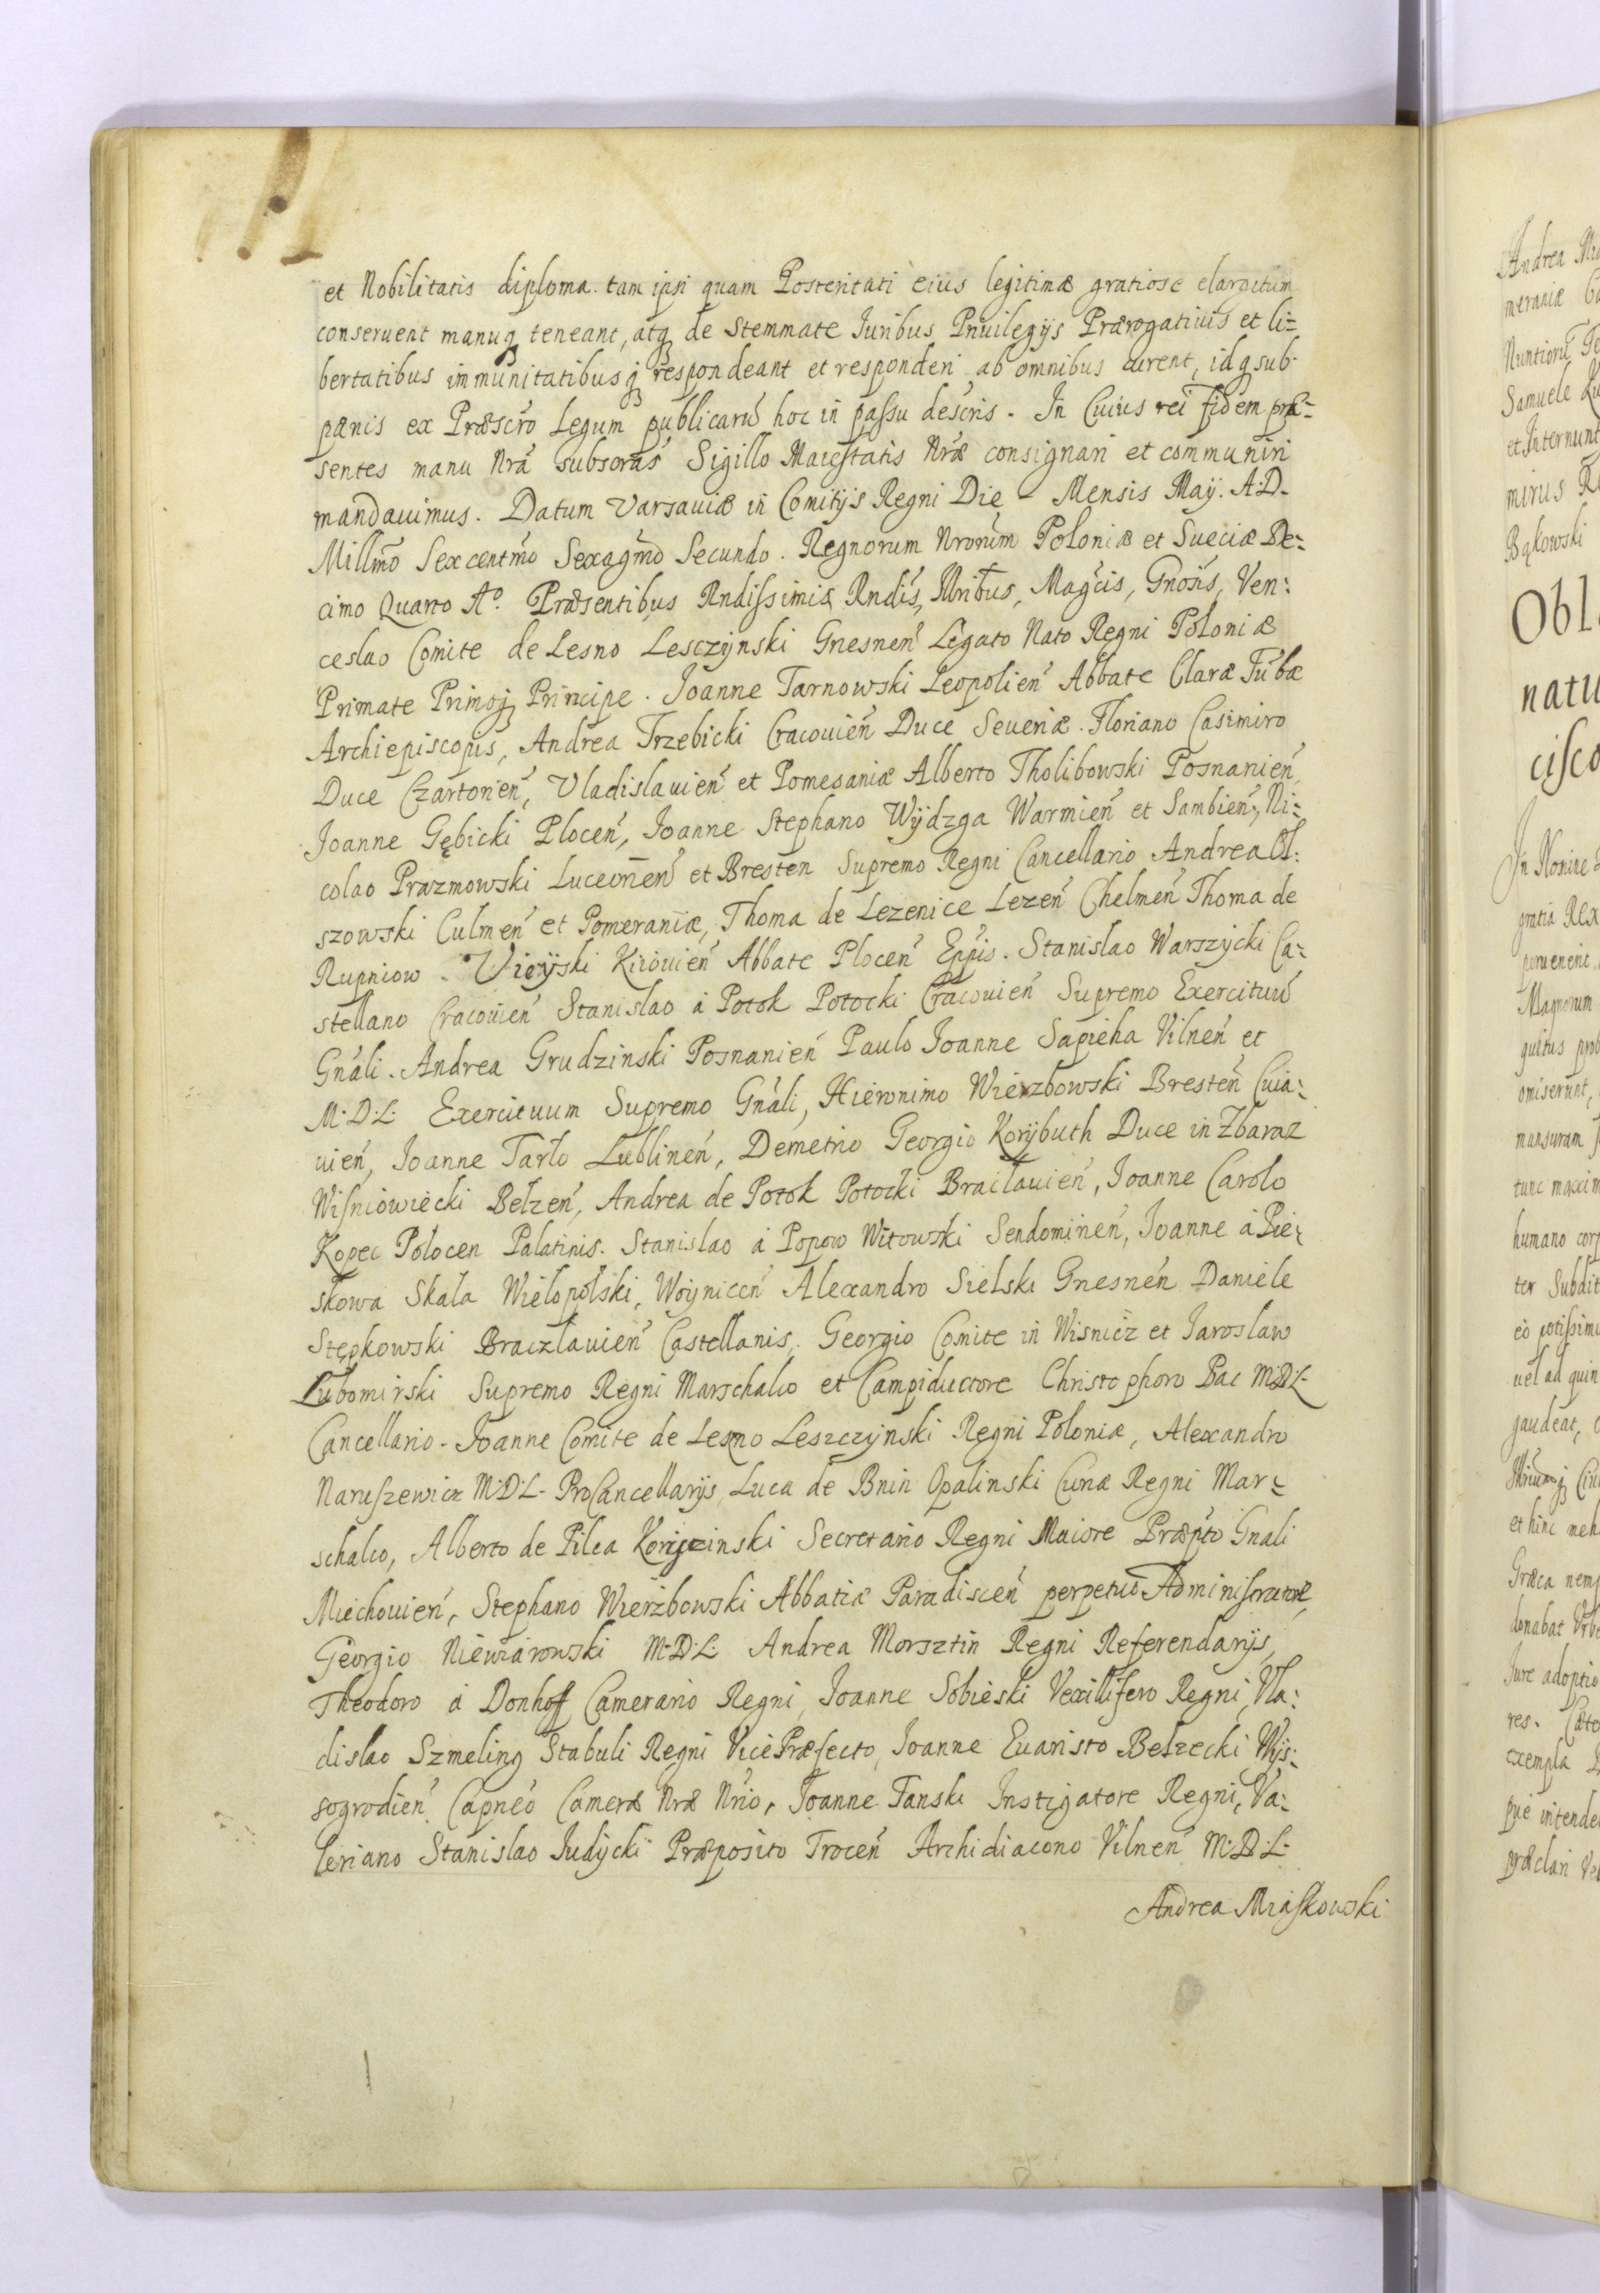 et Nobilitatis diploma tam ipsi quam Posteritati eius legitimæ gratiose elargitum
conseruent manuq teneant, atq de Stemmate Iuribus Priuilegijs Prærogatiuis et li=
bertatibus immunitatibusq respondeant et responderi ab omnibus curent, idq sub
pænis ex Præscro Legum publicarū hoc in passu descris. In Cuius rei fidem præ=
sentes manu Nrã subscras Sigillo Maiestatis Nræ consignari et communiri
mandauimus. Datum Varsauiæ in Comitijs Regni Die – Mensis Maÿ. A.D.
Millmo Sexcentmo Sexagmo Secundo. Regnorum Nrorum Poloniæ et Sueciæ De=
cimo Quarto Aº. Præsentibus Rndissimis, Rndis, Illribus, Magcis, Gnosis, Ven=
ceslao Comite de Lesno Lesczÿnski Gnesneń Legato Nato Regni Poloniæ
Primate Primoq Principe. Joanne Tarnowski Leopolień Abbate Claræ Tubæ
Archiepiscopis, Andrea Trzebicki Cracouień Duce Seueriæ. Floriano Casimiro
Duce Czartorień, Vladislauień et Pomeraniæ Alberto Tholibowski Posnanień,
Joanne Gębicki Ploceń, Joanne Stephano Wÿdzga Warmień et Sambień, Ni=
colao Prazmowski Luceorień et Bresteń Supremo Regni Cancellario Andrea Ol=
szowski Culmeń et Pomeraniæ, Thoma de Lezenice Lezeń Chelmeń Thoma de
Rupniow Vieÿski Kiiouień Abbate Ploceń Eppis. Stanislao Warszÿcki Ca=
stellano Cracouień Stanislao à Potok Potocki Cracouień Supremo Exercituū
Gnáli. Andrea Grudzinski Posnanień Paulo Joanne Sapieha Vilneń et
M:D:L: Exercituum Supremo Gnáli, Hieronimo Wierzbowski Bresteń Cuia=
uień, Joanne Tarło Lublineń, Demetrio Georgio Korÿbuth Duce in Zbaraz
Wiśniowiecki Bełzeń, Andrea de Potok Potocki Bracłauień, Joanne Carolo
Kopec Polocen Palatinis. Stanislao à Popow Witowski Sendomireń, Joanne à Pie=
skowa Skała Wielopolski, Woÿniceń Alexandro Sielski Gnesneń Daniele
Stępkowski Braczlauień Castellanis. Georgio Comite in Wisnicz et Jaroslaw
Lubomirski Supremo Regni Marschalco et Campiductore Christophoro Pac M:D:L:
Cancellario. Joanne Comite de Leszno Leszczÿnski Regni Poloniæ, Alexandro
Naruszewicz M:D:L: ProCancellarijs, Luca de Bnin Opalinski Curiæ Regni Mar=
schalco, Alberto de Pilca Korÿcinski Secretario Regni Maiore Præpto Gnali
Miechouień, Stephano Wierżbowski Abbatiæ Paradisceń perpetuo Administratore,
Georgio Niewiarowski M:D:L: Andrea Morsztin Regni Referendarijs,
Theodoro à Donhoff Camerario Regni, Joanne Sobieski Vexillifero Regni, Vla=
dislao Szmeling Stabuli Regni VicePræfecto, Joanne Euaristo Bełzecki Wÿs=
sogrodień Capneo Cameræ Nræ Nrio, Joanne Tanski Instigatore Regni, Va=
leriano Stanislao Judÿcki Præposito Troceń Archidiacono Vilneń M:D:L:
Andrea Miaskowski
Andrea Mia
meraniæ
Nuntiorū
Samuele
et Internunt
mirus
Bąkowski
Obl
natu
cisco
In Nomine
gratia Rex
peruenerit
Magnorum
guitus prob
omiserunt,
mansuram
tunc maxim
humano corp
ter Subdit
eò potissimu
uel ad quin
gaudeat,
et hinc neh
Græca nemp
donabat Urbe
Iure adoptio
res.
exempla
pué intende
præclari